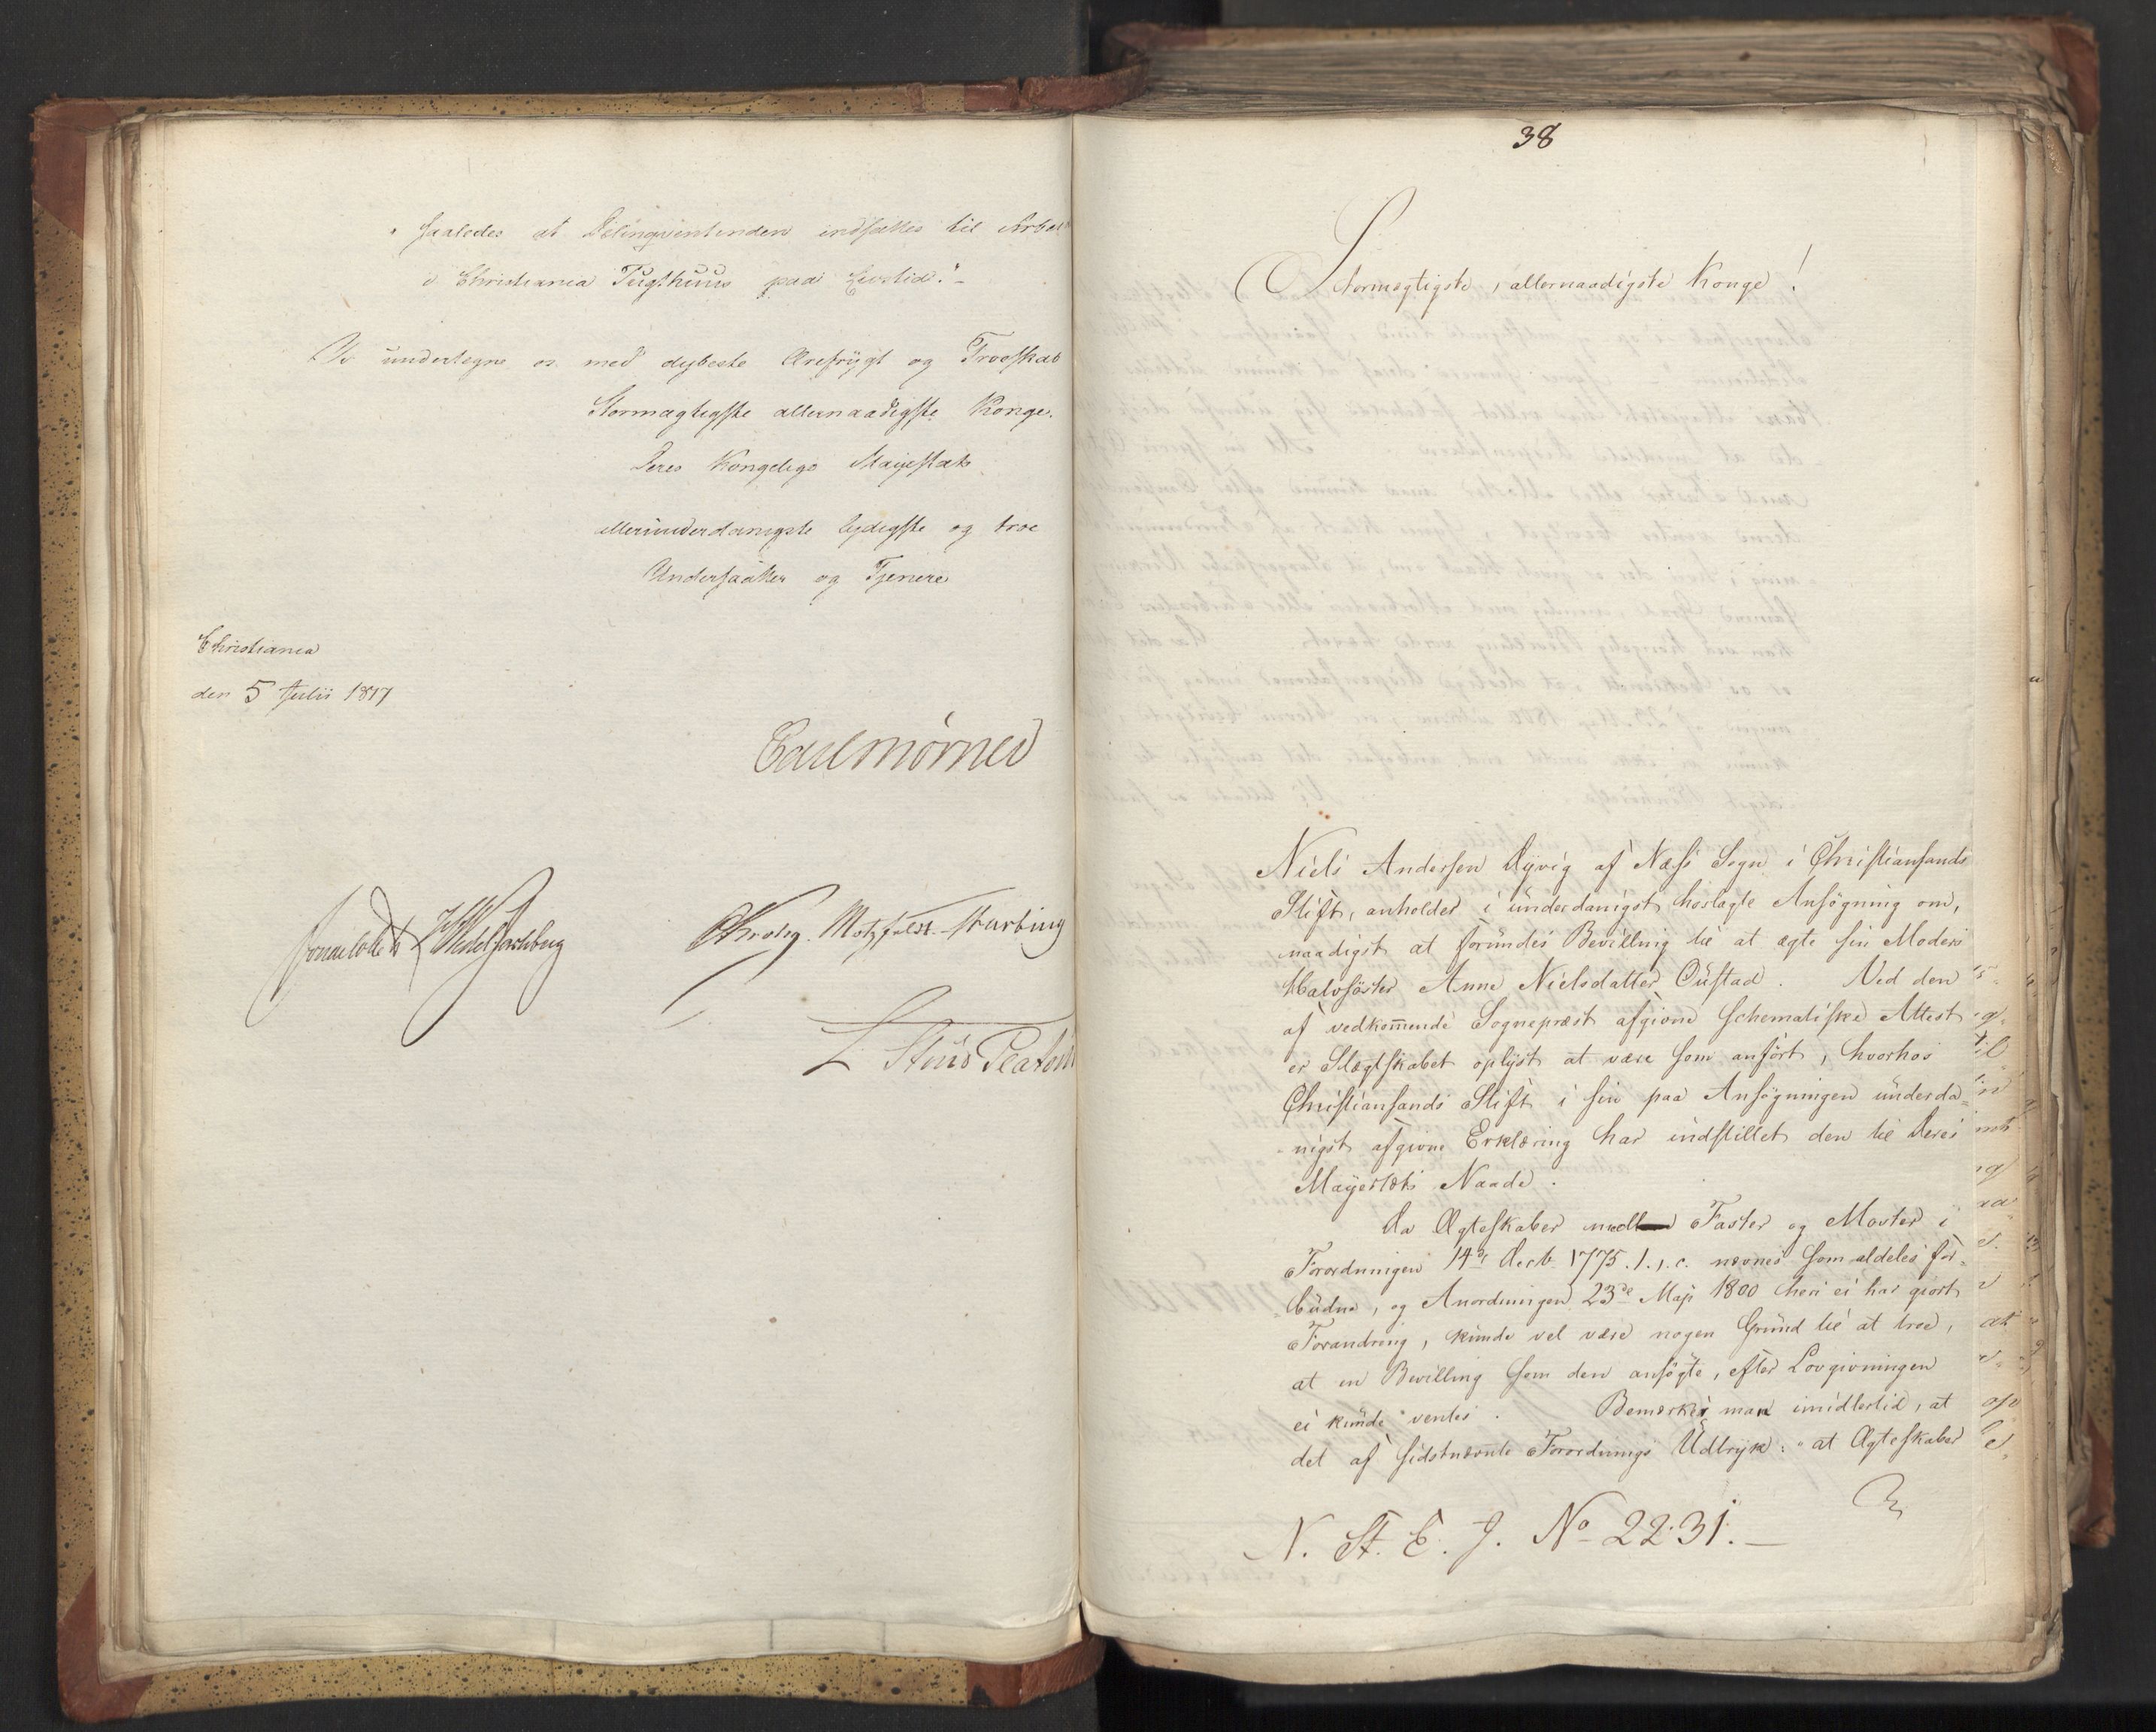 saaledes at Delinqventinden indsættes til Arbei
i Christiania Tugthuus paa Livstid."
Vi undertegne os med dybeste Ærefrygt og Troeskab
Stormægtigste allernaadigste Konge.
Deres Kongelige Majestæts
allerunderdanigste lydigste og troe
Undersaatter og Tjenere
Christiania
den 5 Julii 1817
Carl Mörner
Sommerhielm HWedel Jarlsberg
CKrohg. Motzfeldt.
L Stoud Platou
38
Stormægtigste, allernaadigste Konge!
Niels Andersen Dyvig af Næss Sogn i Christiansands
Stift, anholder i underdanigst hoslagte Ansøgning om,
naadigst at forundes Bevilling til at ægte sin Moders
Halvsøster Anne Nielsdatter Oustad. Ved den
af vedkom̄ende Sognepræst afgivne schematiske Attest
er Slægtskabet oplyst at være som anført, hvorhos
Christiansands Stift i sin paa Ansøgningen underda=
nigst afgivne Erklæring har indstillet den til Deres
Mayestæts Naade.
Da Ægteskaber med Faster og Moster i
Forordningen 14de Decb. 1775. 1. 1. c. nævnes som aldeles for=
budne, og Anordningen 23de Maji 1800 heri ei har giort
Forandring, kunde vel være nogen Grund til at troe,
at en Bevilling som den ansøgte, efter Lovgivningen
ei kunde ventes. Bemærker man imidlertid, at
det af sidstnævnte Forordnings Udtryk: "at Ægteskaber
N. St. E. J. No 2231.